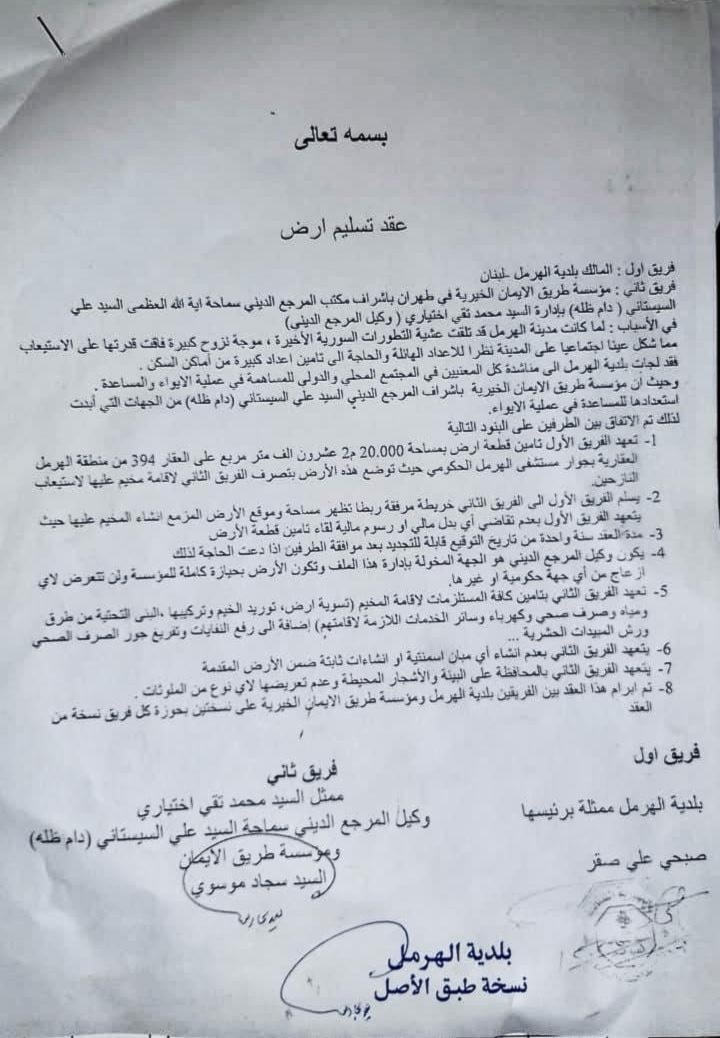 بسمه تعالى
عقد تسليم ارض
فريق اول : المالك بلدية الهرمل -لبنان
فريق ثاني : مؤسسة طريق الايمان الخيرية في طهران باشراف مكتب المرجع الديني سماحة اية الله العظمى السيد علي
السيستاني ( دام ظله) بإدارة السيد محمد تقي اختياري ( وكيل المرجع الديني)
في الأسباب : لما كانت مدينة الهرمل قد تلقت عشية التطورات السورية الأخيرة ، موجة نزوح كبيرة فاقت قدرتها على الاستيعاب
مما شكل عبئا اجتماعيا على المدينة نظرا للاعداد الهائلة والحاجة الى تامين اعداد كبيرة من أماكن السكن .
فقد لجات بلدية الهرمل الى مناشدة كل المعنيين في المجتمع المحلي والدولي للمساهمة في عملية الايواء والمساعدة .
وحيث أن مؤسسة طريق الايمان الخيرية باشراف المرجع الديني السيد علي السيستاني (دام ظله) من الجهات التي أبدت
استعدادها للمساعدة في عملية الايواء.
لذلك تم الاتفاق بين الطرفين على البنود التالية
1- تعهد الفريق الأول تامين قطعة ارض بمساحة 20.000 م2 عشرون الف متر مربع على العقار 394 من منطقة الهرمل
العقارية بجوار مستشفى الهرمل الحكومي حيث توضع هذه الأرض بتصرف الفريق الثاني لاقامة مخيم عليها لاستيعاب
النازحين.
2- يسلم الفريق الأول الى الفريق الثاني خريطة مرفقة ربطا تظهر مساحة وموقع الأرض المزمع انشاء المخيم عليها حيث
يتعهد الفريق الأول بعدم تقاضي أي بدل مالي او رسوم مالية لقاء تامين قطعة الأرض
3- مدة العقد سنة واحدة من تاريخ التوقيع قابلة للتجديد بعد موافقة الطرفين اذا دعت الحاجة لذلك
4- يكون وكيل المرجع الديني هو الجهة المخولة بإدارة هذا الملف وتكون الأرض بحيازة كاملة للمؤسسة ولن تتعرض لاي
ازعاج من أي جهة حكومية او غيرها.
5- تعهد الفريق الثاني بتامين كافة المستلزمات لاقامة المخيم (تسوية ارض، توريد الخيم وتركيبها ،البنى التحتية من طرق
ومياه وصرف صحي وكهرباء وسائر الخدمات اللازمة لاقامتهم) إضافة الى رفع النفايات وتفريغ جور الصرف الصحي
ورش المبيدات الحشرية ...
6- يتعهد الفريق الثاني بعدم انشاء أي مبان اسمنتية او انشاءات ثابتة ضمن الأرض المقدمة
7- يتعهد الفريق الثاني بالمحافظة على البيئة والأشجار المحيطة وعدم تعريضها لاي نوع من الملوثات .
8- تم ابرام هذا العقد بين الفريقين بلدية الهرمل ومؤسسة طريق الايمان الخيرية على نسختين بحوزة كل فريق نسخة من
العقد
فريق اول
بلدية الهرمل ممثلة برئيسها
صبحي علي صقر
فريق ثاني
ممثل السيد محمد تقي اختياري
وكيل المرجع الديني سماحة السيد علي السيستاني (دام ظله)
ومؤسسة طريق الايمان
السيد سجاد موسوي
بلدية الهرمل
نسخة طبق الأصل